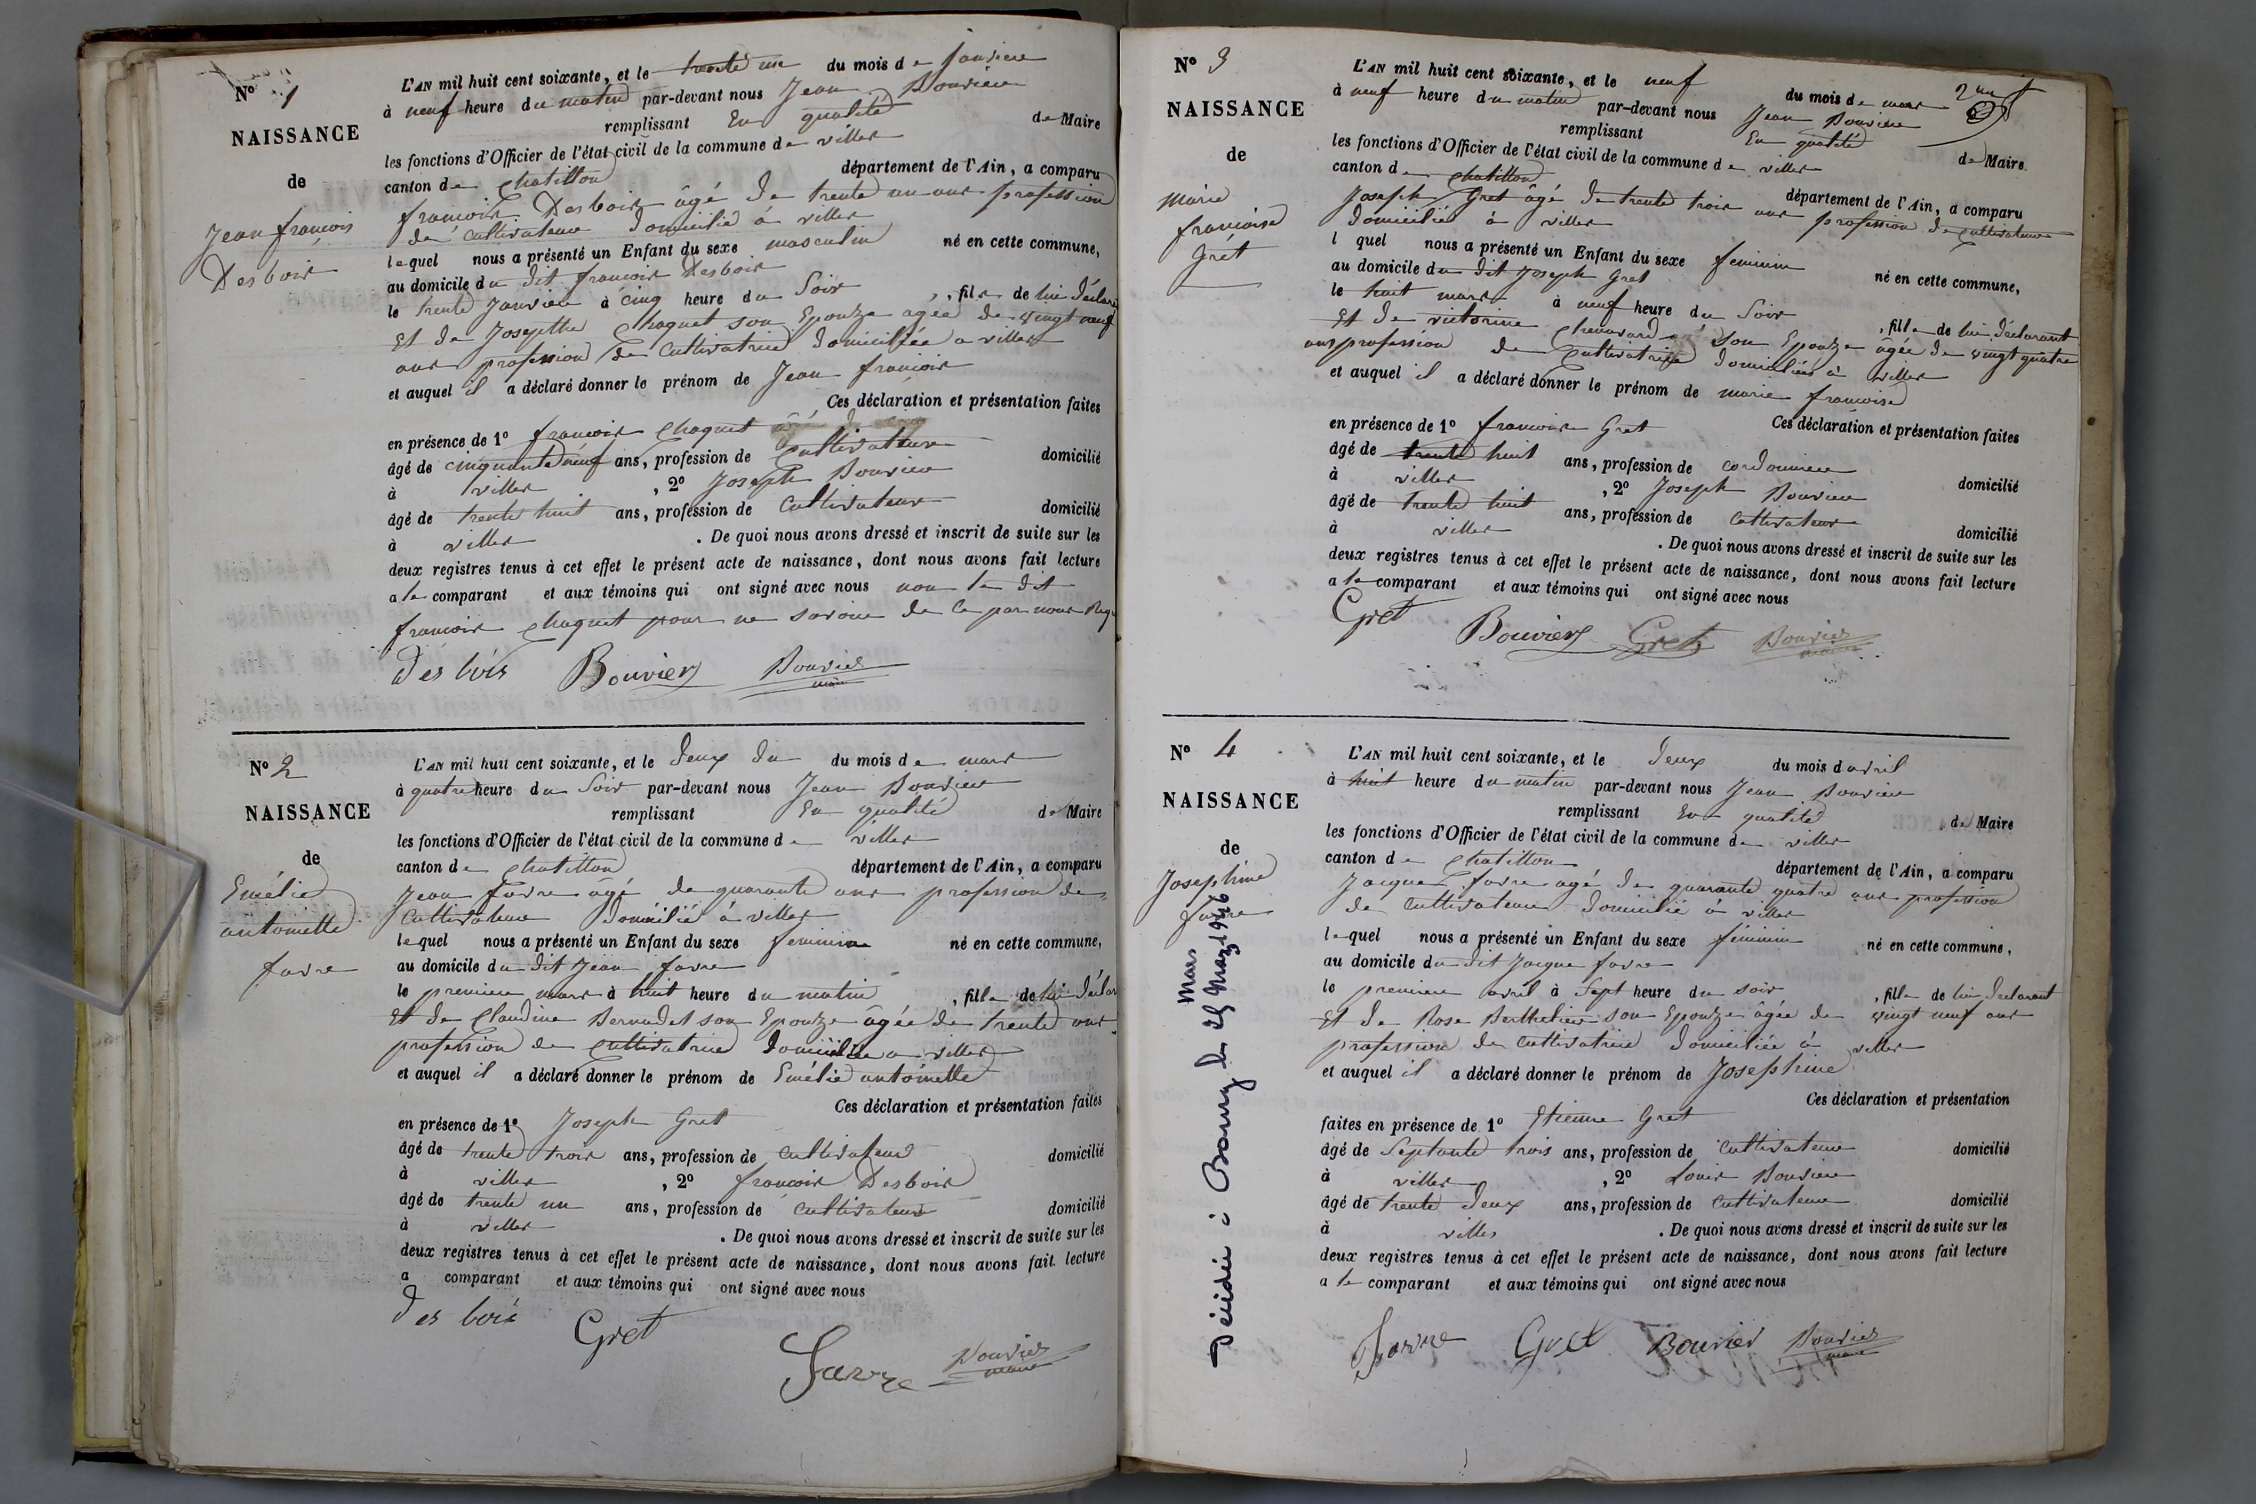 N° 1
NAISSANCE
de
Jean françois
Desbois
L'AN mil huit cent soixante, et le trente un du mois de janvier
à neuf heure du matin par-devant nous Jean Bouvier
remplissant En qualité de Maire
les fonctions d'Officier de l'état civil de la commune de villes
canton de Chatillon département de l'Ain, a comparu
françois Desbois âgé de trente un ans profession
de cultivateur domicilié à villes
lequel nous a présenté un Enfant du sexe masculin né en cette commune,
au domicile du dit françois Desbois
le trente Janvier à cinq heure du Soir , fils de lui déclara
Et de Josephte Chaquet son Epouze agée de vingt neuf
ans profession de Cultivatrice domiciliée a villes
et auquel il a déclaré donner le prénom de Jean françois
Ces déclaration et présentation faites
en présence de 1° françois Chaquet
âgé de cinquante neuf ans, profession de Cultivateur domicilié
à villes , 2° Joseph Bouvier
âgé de trente huit ans, profession de Cultivateur domicilié
à villes . De quoi nous avons dressé et inscrit de suite sur les
deux registres tenus à cet effet le présent acte de naissance, dont nous avons fait lecture
a le comparant et aux témoins qui ont signé avec nous non le dit
francois Chaquet pour ne savoir de ce par nous Requ
Des bois Bouvier Bouvier
maire
N° 2
NAISSANCE
de
Emélie
antoinette
favre
L'AN mil huit cent soixante, et le deux du du mois de mars
à quatre heure du Soir par-devant nous Jean Bouvier
remplissant En qualité de Maire
les fonctions d'Officier de l'état civil de la commune de villes
canton de Chatillon département de l'Ain, a comparu
Jean favre âgé de quarante ans profession de
Cultivateur domicilié à villes
lequel nous a présenté un Enfant du sexe feminin né en cette commune,
au domicile du dit Jean favre
le premier mars à huit heure du matin , fille de lui déclar
Et de Claudine Bernadet son Epouze âgée de trente ans
profession de cultivatrice domiciliée a villes
et auquel il a déclaré donner le prénom de Emélie antoinette
Ces déclaration et présentation faites
en présence de 1° Joseph Gret
âgé de trente trois ans, profession de cultivateur domicilié
à villes , 2° francois Desbois
âgé de trente un ans, profession de cultivateur domicilié
à villes . De quoi nous avons dressé et inscrit de suite sur les
deux registres tenus à cet effet le présent acte de naissance, dont nous avons fait lecture
a comparant et aux témoins qui ont signé avec nous
Des bois Gret Favre Bouvier
maire
N° 3
NAISSANCE
de
Marie
francoise
Grét
L'AN mil huit cent soixante, et le neuf du mois de mars
à neuf heure du matin par-devant nous Jean Bouvier
remplissant En qualité de Maire
les fonctions d'Officier de l'état civil de la commune de villes
canton de Chatillon département de l'Ain, a comparu
Joseph Gret âgé de trente trois ans profession de cultivateur
domicilié à villes
l quel nous a présenté un Enfant du sexe feminin né en cette commune,
au domicile du dit Joseph Gret
le huit mars à neuf heure du Soir , fille de lui déclarant
Et de victorine Chenavard son Epouze âgée de vingt quatre
ans profession de Cultivatrice domiciliée à villes
et auquel il a déclaré donner le prénom de marie francoise
Ces déclaration et présentation faites
en présence de 1° francois Gret
âgé de trente huit ans, profession de cordonnier domicilié
à villes , 2° Joseph Bouvier
âgé de trente huit ans, profession de cultivateur domicilié
à villes . De quoi nous avons dressé et inscrit de suite sur les
deux registres tenus à cet effet le présent acte de naissance, dont nous avons fait lecture
a le comparant et aux témoins qui ont signé avec nous
Gret Bouvier Gret Bouvier
maire
N° 4
NAISSANCE
de
Josephine
favre
Décédée à Bourg le 25 Mars 1946
Mars
L'AN mil huit cent soixante, et le deux du mois d avril
à huit heure du matin par-devant nous Jean Bouvier
remplissant En qualité de Maire
les fonctions d'Officier de l'état civil de la commune de villes
canton de Chatillon département de l'Ain, a comparu
Jacque favre agé de quarante quatre ans profession
de cultivateur domicilié à villes
lequel nous a présenté un Enfant du sexe féminin né en cette commune,
au domicile du dit Jacque favre
le premier avril à Sept heure du soir , fille de lui déclarant
Et de Rose Berthelier son Epouze âgée de vingt neuf ans
profession de cultivatrice domiciliée à villes
et auquel il a déclaré donner le prénom de Josephine
Ces déclaration et présentation
faites en présence de 1° Etienne Gret
âgé de Septante trois ans, profession de cultivateur domicilié
à villes , 2° Louis Bouvier
âgé de trente deux ans, profession de cultivateur domicilié
à villes . De quoi nous avons dressé et inscrit de suite sur les
deux registres tenus à cet effet le présent acte de naissance, dont nous avons fait lecture
a le comparant et aux témoins qui ont signé avec nous
Favre Gret Bouvier Bouvier
maire